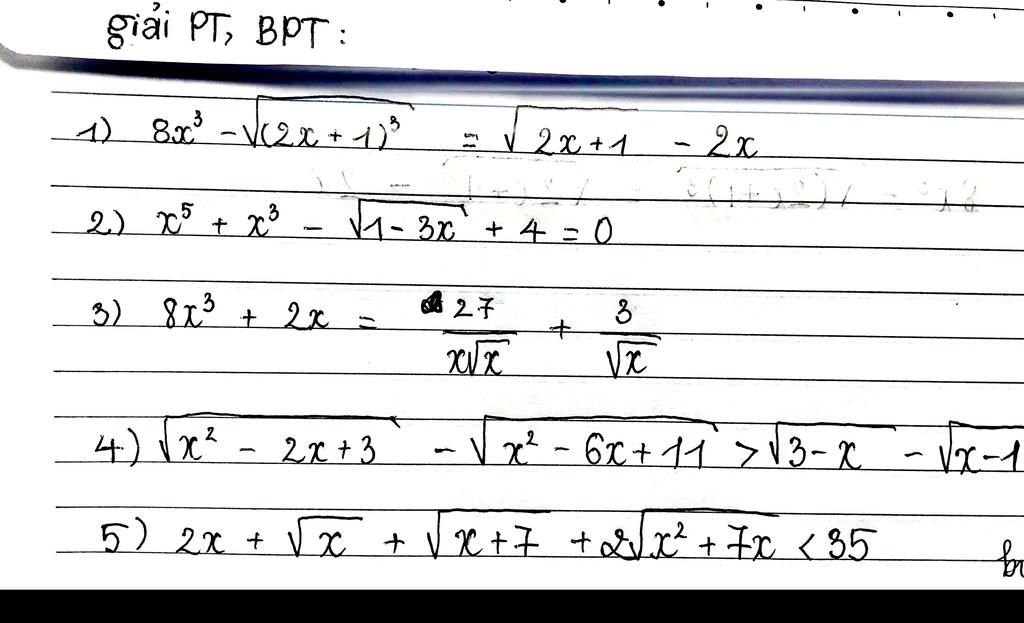 giải PT, BPT :
1) 8x³ - √(2x + 1)³ = √2x+1 - 2x
2) x⁵ + x³ - √1 - 3x + 4 = 0
3) 8x³ + 2x = 27/x√x + 3/√x
4) √x² - 2x + 3 - √x² - 6x + 11 > √3 - x - √x - 1
5) 2x + √x + √x + 7 + 2√x² + 7x < 35